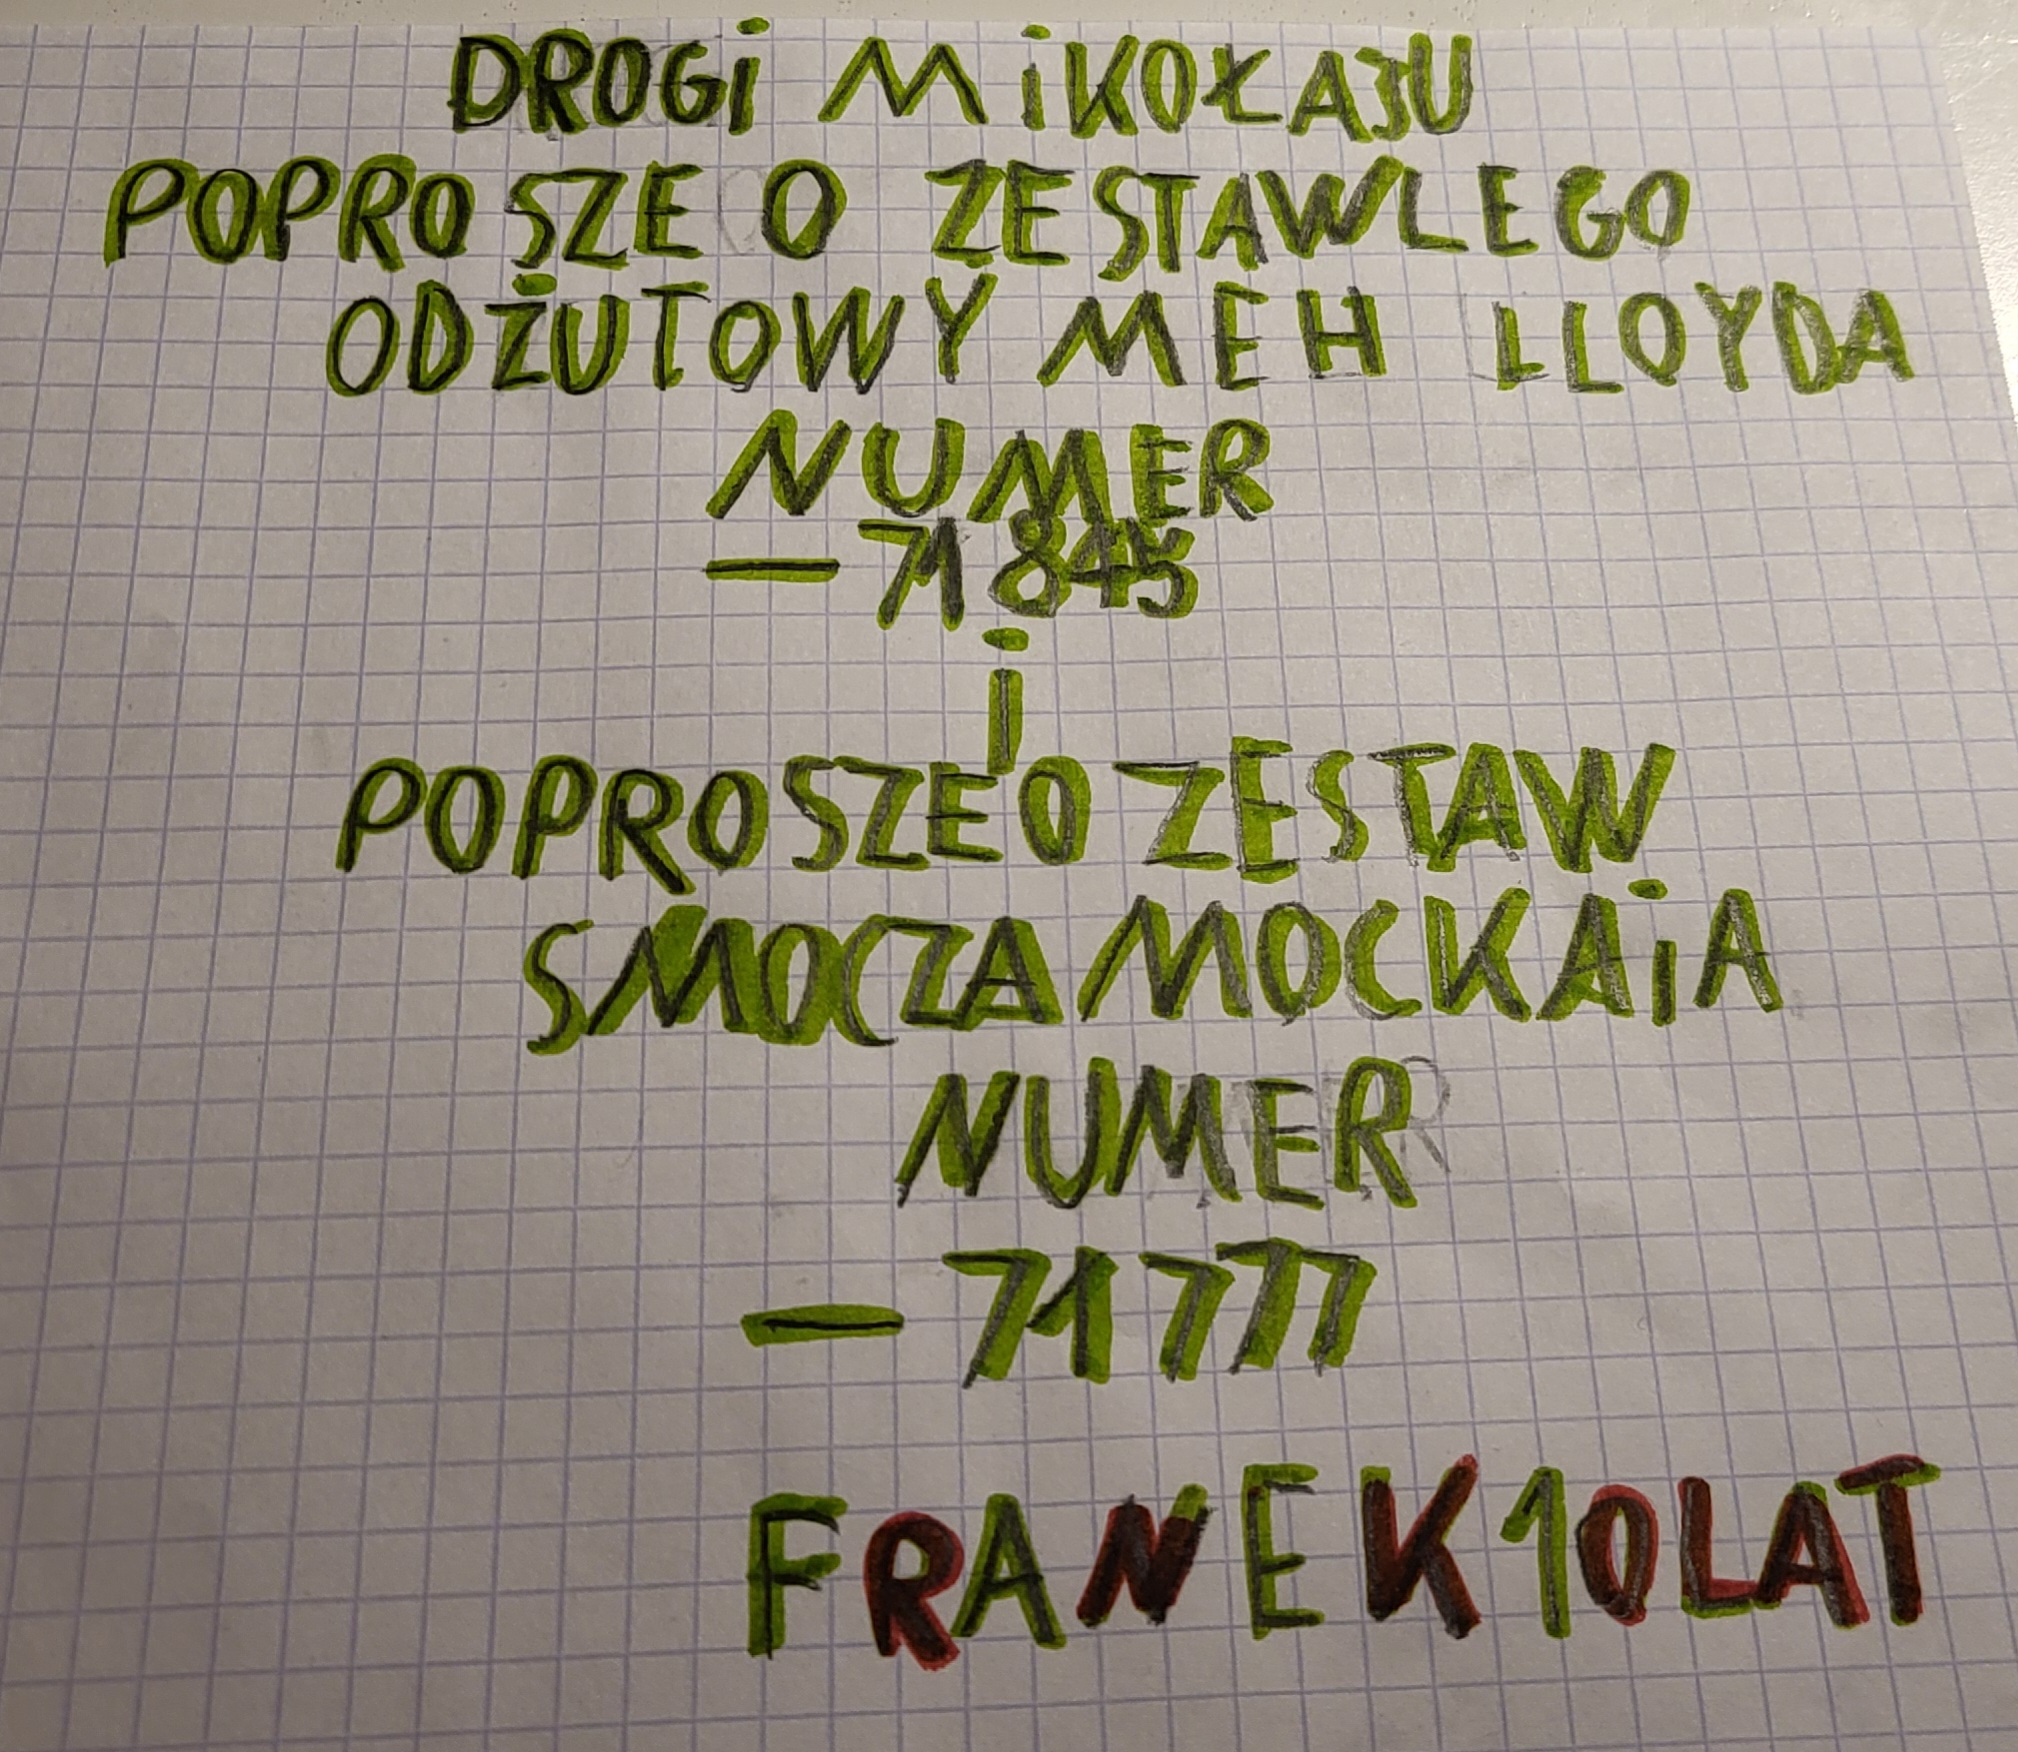 DROGi MiKOŁAJU
POPROSZE O ZESTAWLEGO
ODŻUTOWY MEH LLOYDA
NUMER
— 71 845
i
POPROSZE O ZESTAW
SMOCZA MOCKAiA
NUMER
— 71777
FRANEK 10 LAT